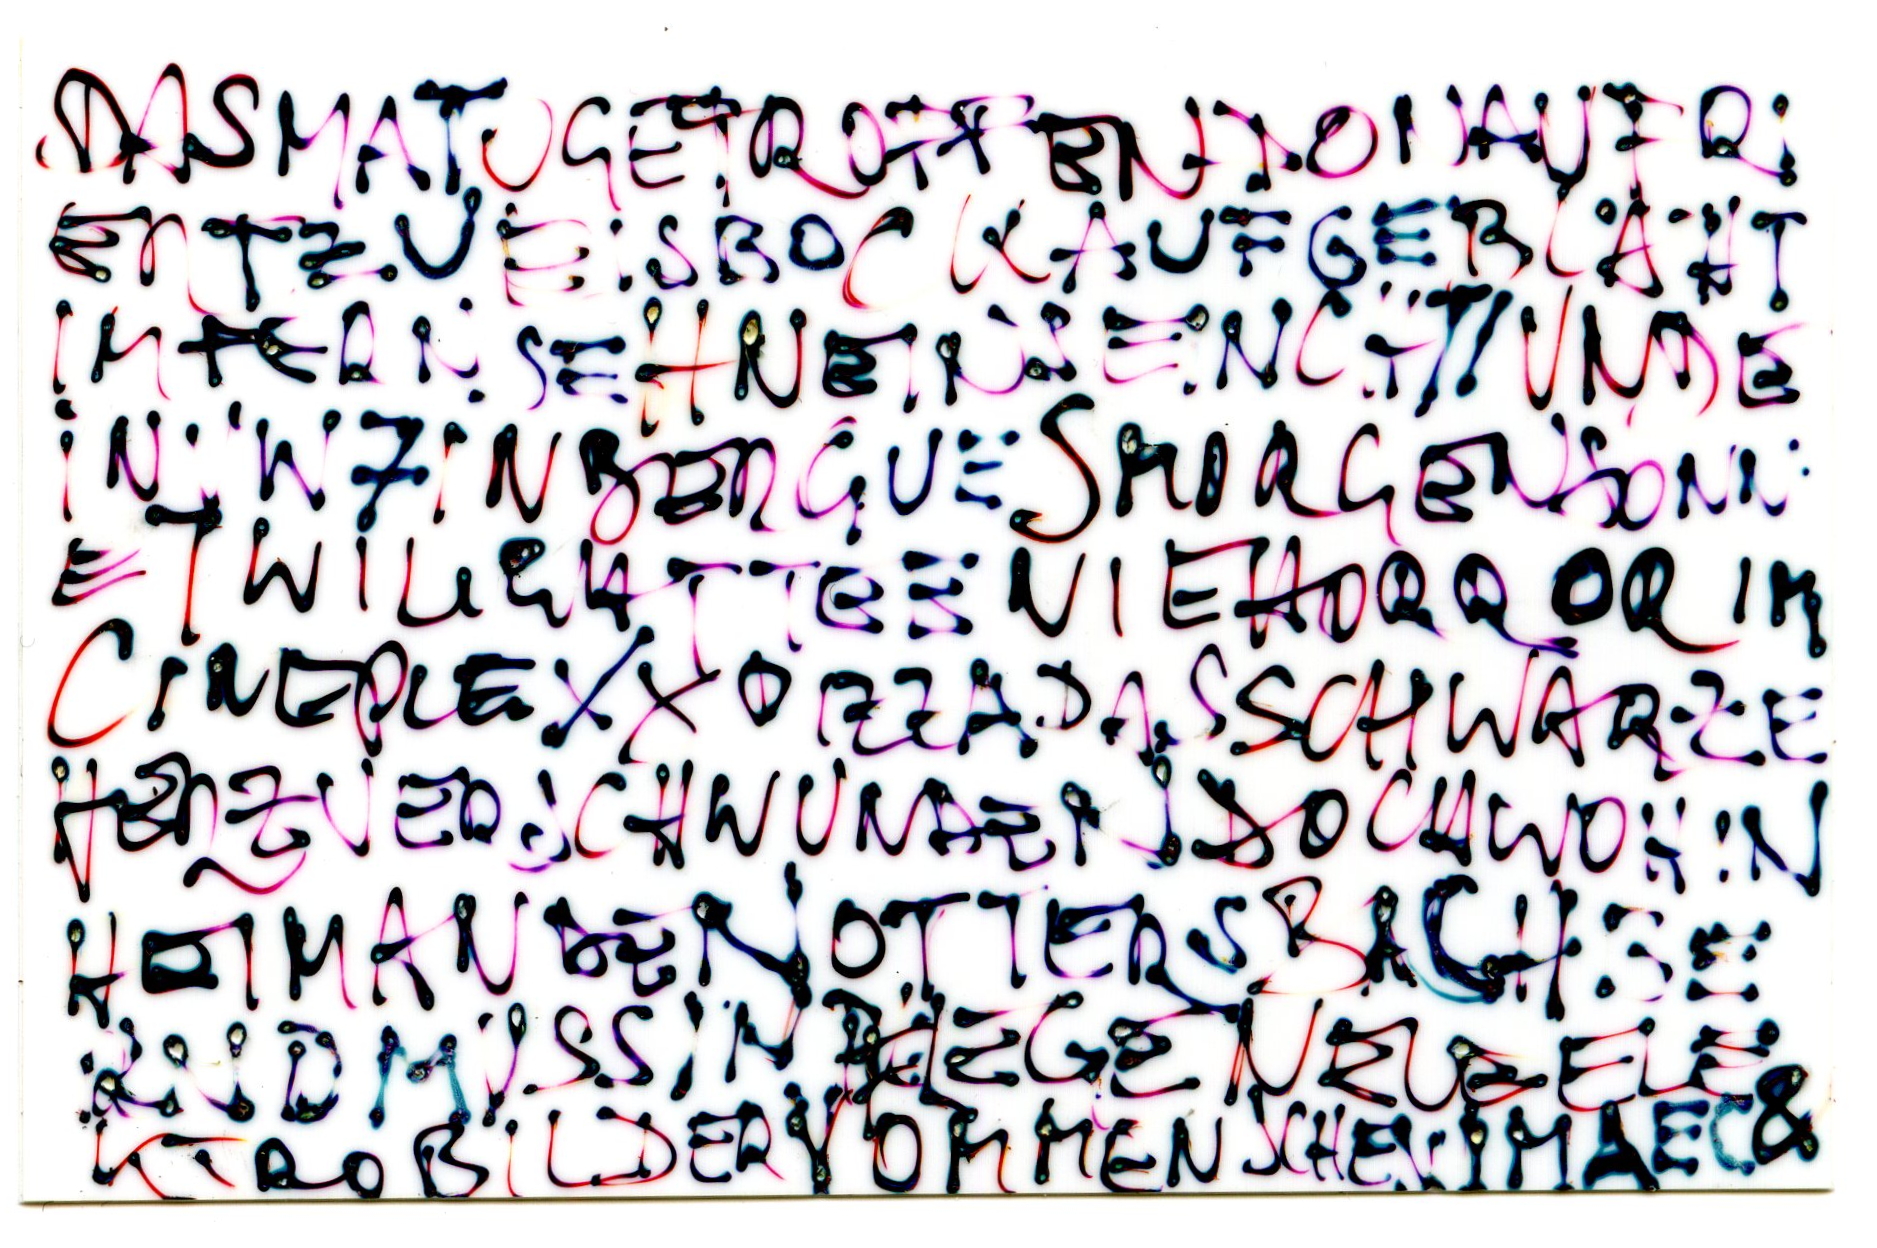 DAS MATU GETROFFEN DONAUFRI
ENTZUEISBOCK AUFGEBLÄHT
IM FERNSEHN EIN SEINCHT//UNDE
IN WEINBERGUESMORGENSONN:
E TWILIGHT BEENIE HORROR IM
CINEPLEXX OPZZA DAS SCHWARZE
HERZ VERSCHWUNDEN DOCH WOHIN
HETMAN DEN OTTERSBACH SE
RND MUSS IN PFLEGE NEUE ELE
KTROBILDER VOM MENSCHEN IM AEC &